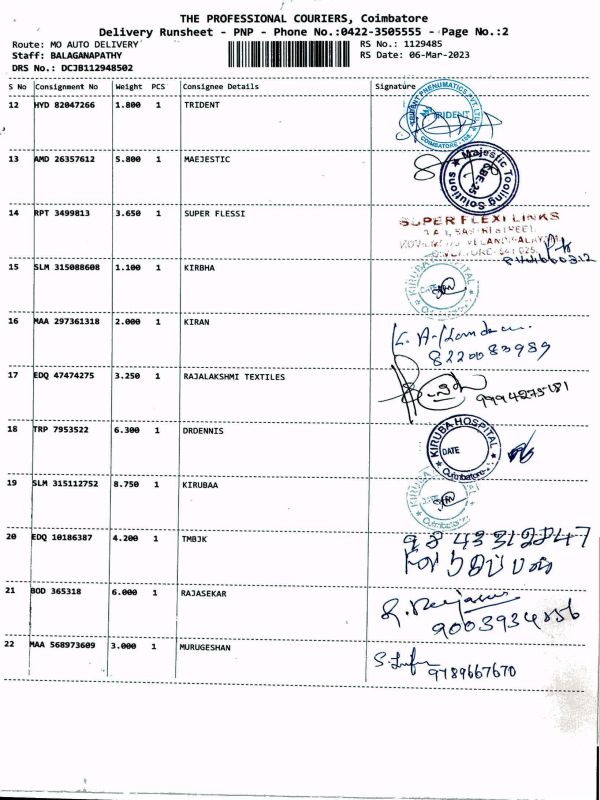 THE PROFESSIONAL COURIERS, Coimbatore
Delivery Runsheet - PNP - Phone No.:0422-3505555 - Page No.:2
Route: MO AUTO DELIVERY RS No.: 1129485
Staff: BALAGANAPATHY RS Date: 06-Mar-2023
DRS No.: DCJB112948502
S No Consignment No Weight PCS Consignee Details Signature
12 HYD 82047266 1.800 1 TRIDENT
TRIDENT
13 AMD 26357612 5.800 1 MAEJESTIC
Majestic Tooling Solutions
CBE-25
14 RPT 3499813 3.650 1 SUPER FLESSI
SUPER FLEXI LINKS
15 SLM 315088608 1.100 1 KIRBHA
KIRUBA HOSPITAL
DATE
16 MAA 297361318 2.000 1 KIRAN
8220083989
17 EDQ 47474275 3.250 1 RAJALAKSHMI TEXTILES
9994275181
18 TRP 7953522 6.300 1 DRDENNIS
KIRUBA HOSPITAL
DATE
Coimbatore
19 SLM 315112752 8.750 1 KIRUBAA
KIRUBA HOSPITAL
DATE
Coimbatore
20 EDQ 10186387 4.200 1 TMBJK
9843312847
21 BOD 365318 6.000 1 RAJASEKAR
9003934856
22 MAA 568973609 3.000 1 MURUGESHAN
9789667670